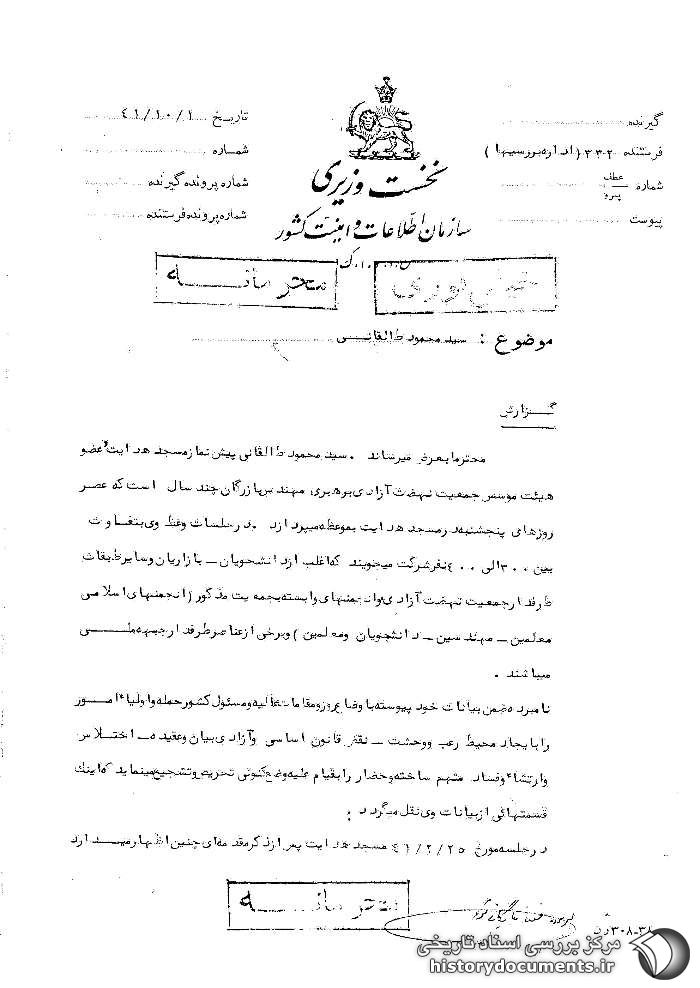 گیرنده
فرستنده ۳۳۲ (اداره بررسیها)
شماره عطف پیرو
پیوست
تاریخ ۴۱/۱۰/۱
شماره
شماره پرونده گیرنده
شماره پرونده فرستنده
نخست وزیری
سازمان اطلاعات و امنیت کشور
س.ا.و.ا.ک
خیلی فوری
محرمانه
موضوع : سید محمود طالقانی
گزارش
محترما بعرض میرساند . سید محمود طالقانی پیش نماز مسجد هدایت عضو
هیئت موسس جمعیت نهضت آزادی برهبری مهندس بازرگان چند سال است که عصر
روزهای پنجشنبه در مسجد هدایت بموعظه میپردازد . در جلسات وعظ وی بتفاوت
بین ۳۰۰ الی ۴۰۰ نفر شرکت میجویند که اغلب از دانشجویان ـ بازاریان و سایر طبقات
طرفدار جمعیت نهضت آزادی و انجمنهای وابسته بجمعیت مذکور (انجمنهای اسلامی
معلمین ـ مهندسین ـ دانشجویان و معلمین ) و برخی از عناصر طرفدار جبهه ملی
میباشند .
نامبرده ضمن بیانات خود پیوسته باوضاع روز و مقامات عالیه و مسئول کشور حمله و اولیاء امور
را بایجاد محیط رعب و وحشت ـ نقض قانون اساسی و آزادی بیان و عقیده ـ اختلاس
و ارتشاء و فساد متهم ساخته و حضار را بقیام علیه وضع کنونی تحریص و تشجیع مینماید که اینک
قسمتهائی از بیانات وی نقل میگردد :
در جلسه مورخ ۴۱/۲/۲۵ مسجد هدایت پس از ذکر مقدمه‌ای چنین اظهار میدارد
محرمانه
۳۰۸-۳۸
مرکز بررسی اسناد تاریخی
historydocuments.ir